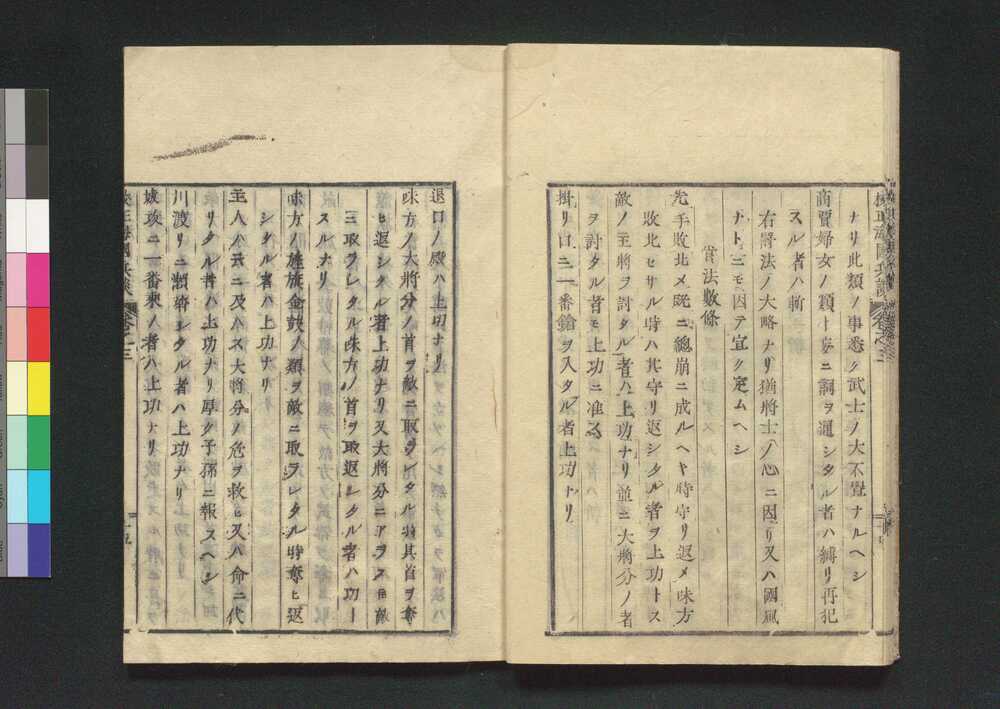 ナリ此類ノ事悉ク武士ノ大不覺ナルヘシ
商賈婦女ノ類ト妄ニ詞ヲ通シタル者ハ縛リ再犯
スル者ハ斬
右罸法ノ大略ナリ猶將士ノ心ニ因リ又ハ國風
ナトニモ因テ宜ク定ムヘシ
賞法數條
先手敗北メ既ニ總崩ニ成ルヘキ時守リ返メ味方
敗北セサル時ハ其守リ返シタル者ヲ上功トス
敵ノ主將ヲ討タル者ハ上功ナリ並ニ大將分ノ者
ヲ討タル者モ上功ニ准ス
掛リ口ニ一番鎗ヲ入タル者上功ナリ
退口ノ殿ハ上功ナリ
味方ノ大將分ノ首ヲ敵ニ取ラレタル時其首ヲ奪
ヒ返シタル者上功ナリ又大將分ニアラス
ニ取ラレタル味方ノ首ヲ取返シタル者ハ功一
スルナリ
味方ノ旌旗金鼓ノ類ヲ敵ニ取ラレタル時奪ヒ返
シタル者ハ上功ナリ
主人ハ云ニ及ハス大將分ノ危ヲ救ヒ又ハ命ニ代
リタル者ハ上功ナリ厚ク子孫ニ報スヘシ
川渡リニ類鞆シタル者ハ上功ナリ
城攻ニ一番乘ノ者ハ上功ナリ